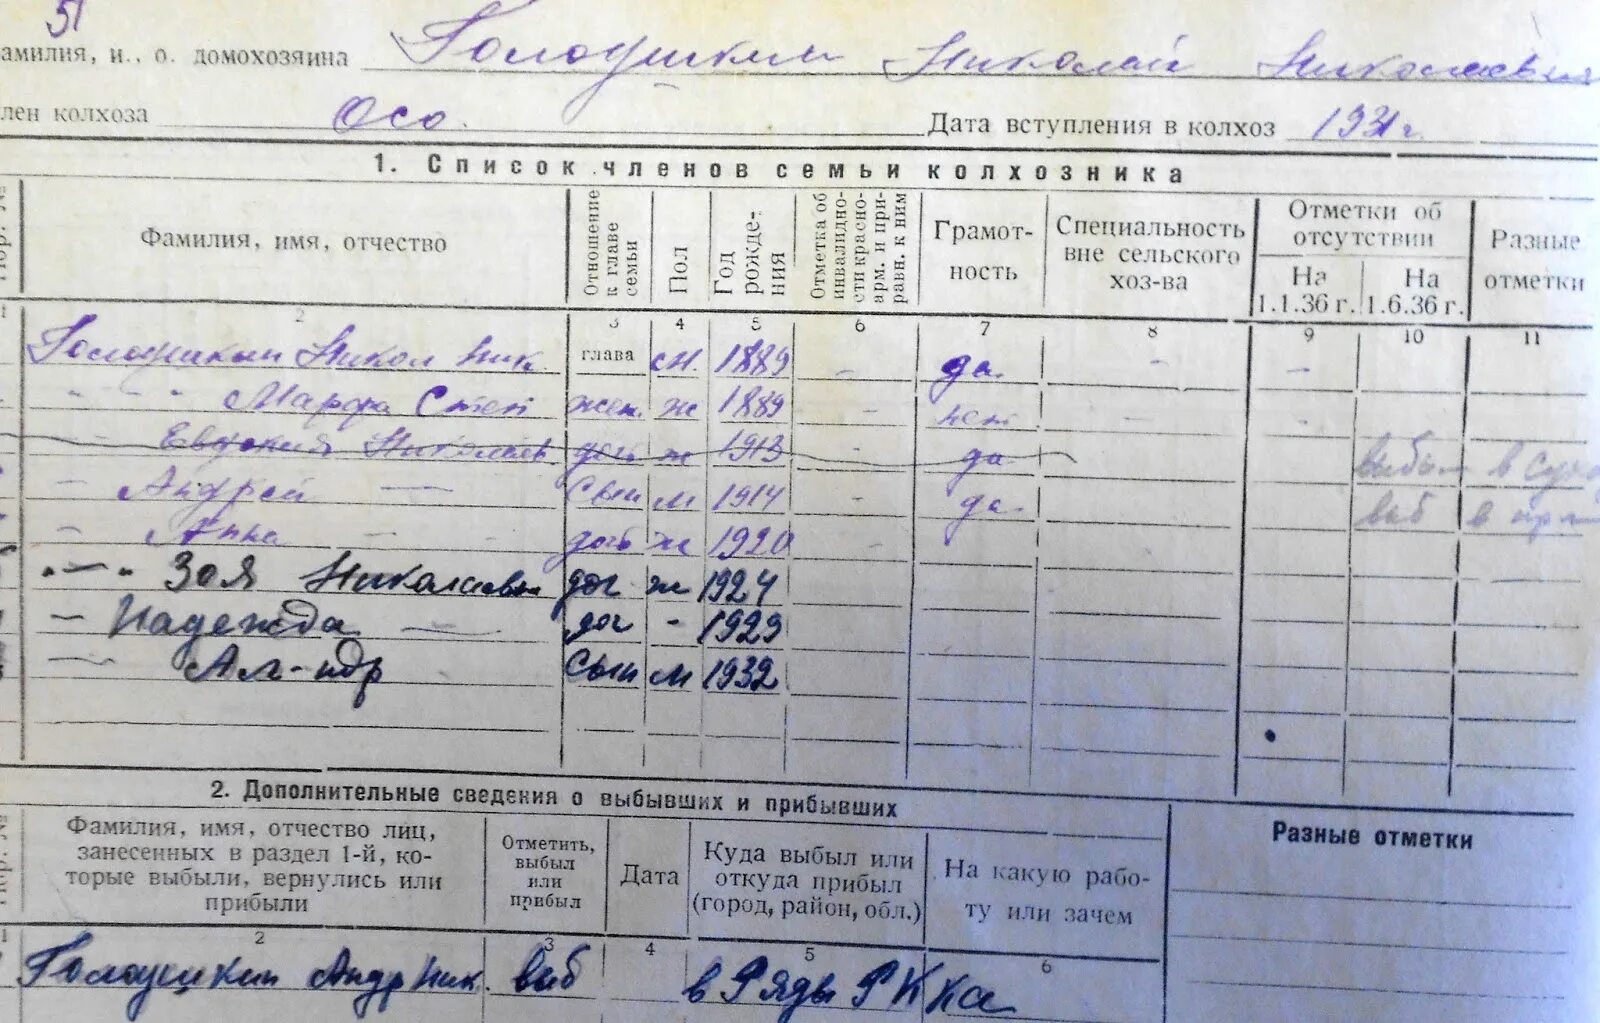 51
амилия, и., о. домохозяина Голоушкин Николай Николаевич
лен колхоза Осо. Дата вступления в колхоз 1931 г.
1. Список членов семьи колхозника
Пор. №
Фамилия, имя, отчество
Отношение к главе семьи
Пол
Год рожде-ния
Отметка об инвалидно-сти красно-арм. и при-равн. к ним
Грамот-ность
Специальность вне сельского хоз-ва
Отметки об отсутствии
На 1.1.36 г.
На 1.6.36 г.
Разные отметки
1 2 3 4 5 6 7 8 9 10 11
Голоушкин Никол Ник. глава м. 1889 - да. - -
" " " Марфа Степ жен. ж 1889 - нет - -
Николаев дочь ж 1913 да выбыл в
- Андрей — сын м 1914 - да. выб в
- Анна - - дочь ж 1920 -
" — " Зоя Николаевн доч ж 1924
- Надежда — доч - 1929
— Ал-ндр сын м 1932
2. Дополнительные сведения о выбывших и прибывших
Пор. №
Фамилия, имя, отчество лиц,
занесенных в раздел 1-й, ко-
торые выбыли, вернулись или
прибыли
Отметить, выбыл или прибыл
Дата
Куда выбыл или откуда прибыл (город, район, обл.)
На какую рабо-ту или зачем
Разные отметки
1 2 3 4 5 6
Голоушкин Андр Ник. выб в Ряды РККа